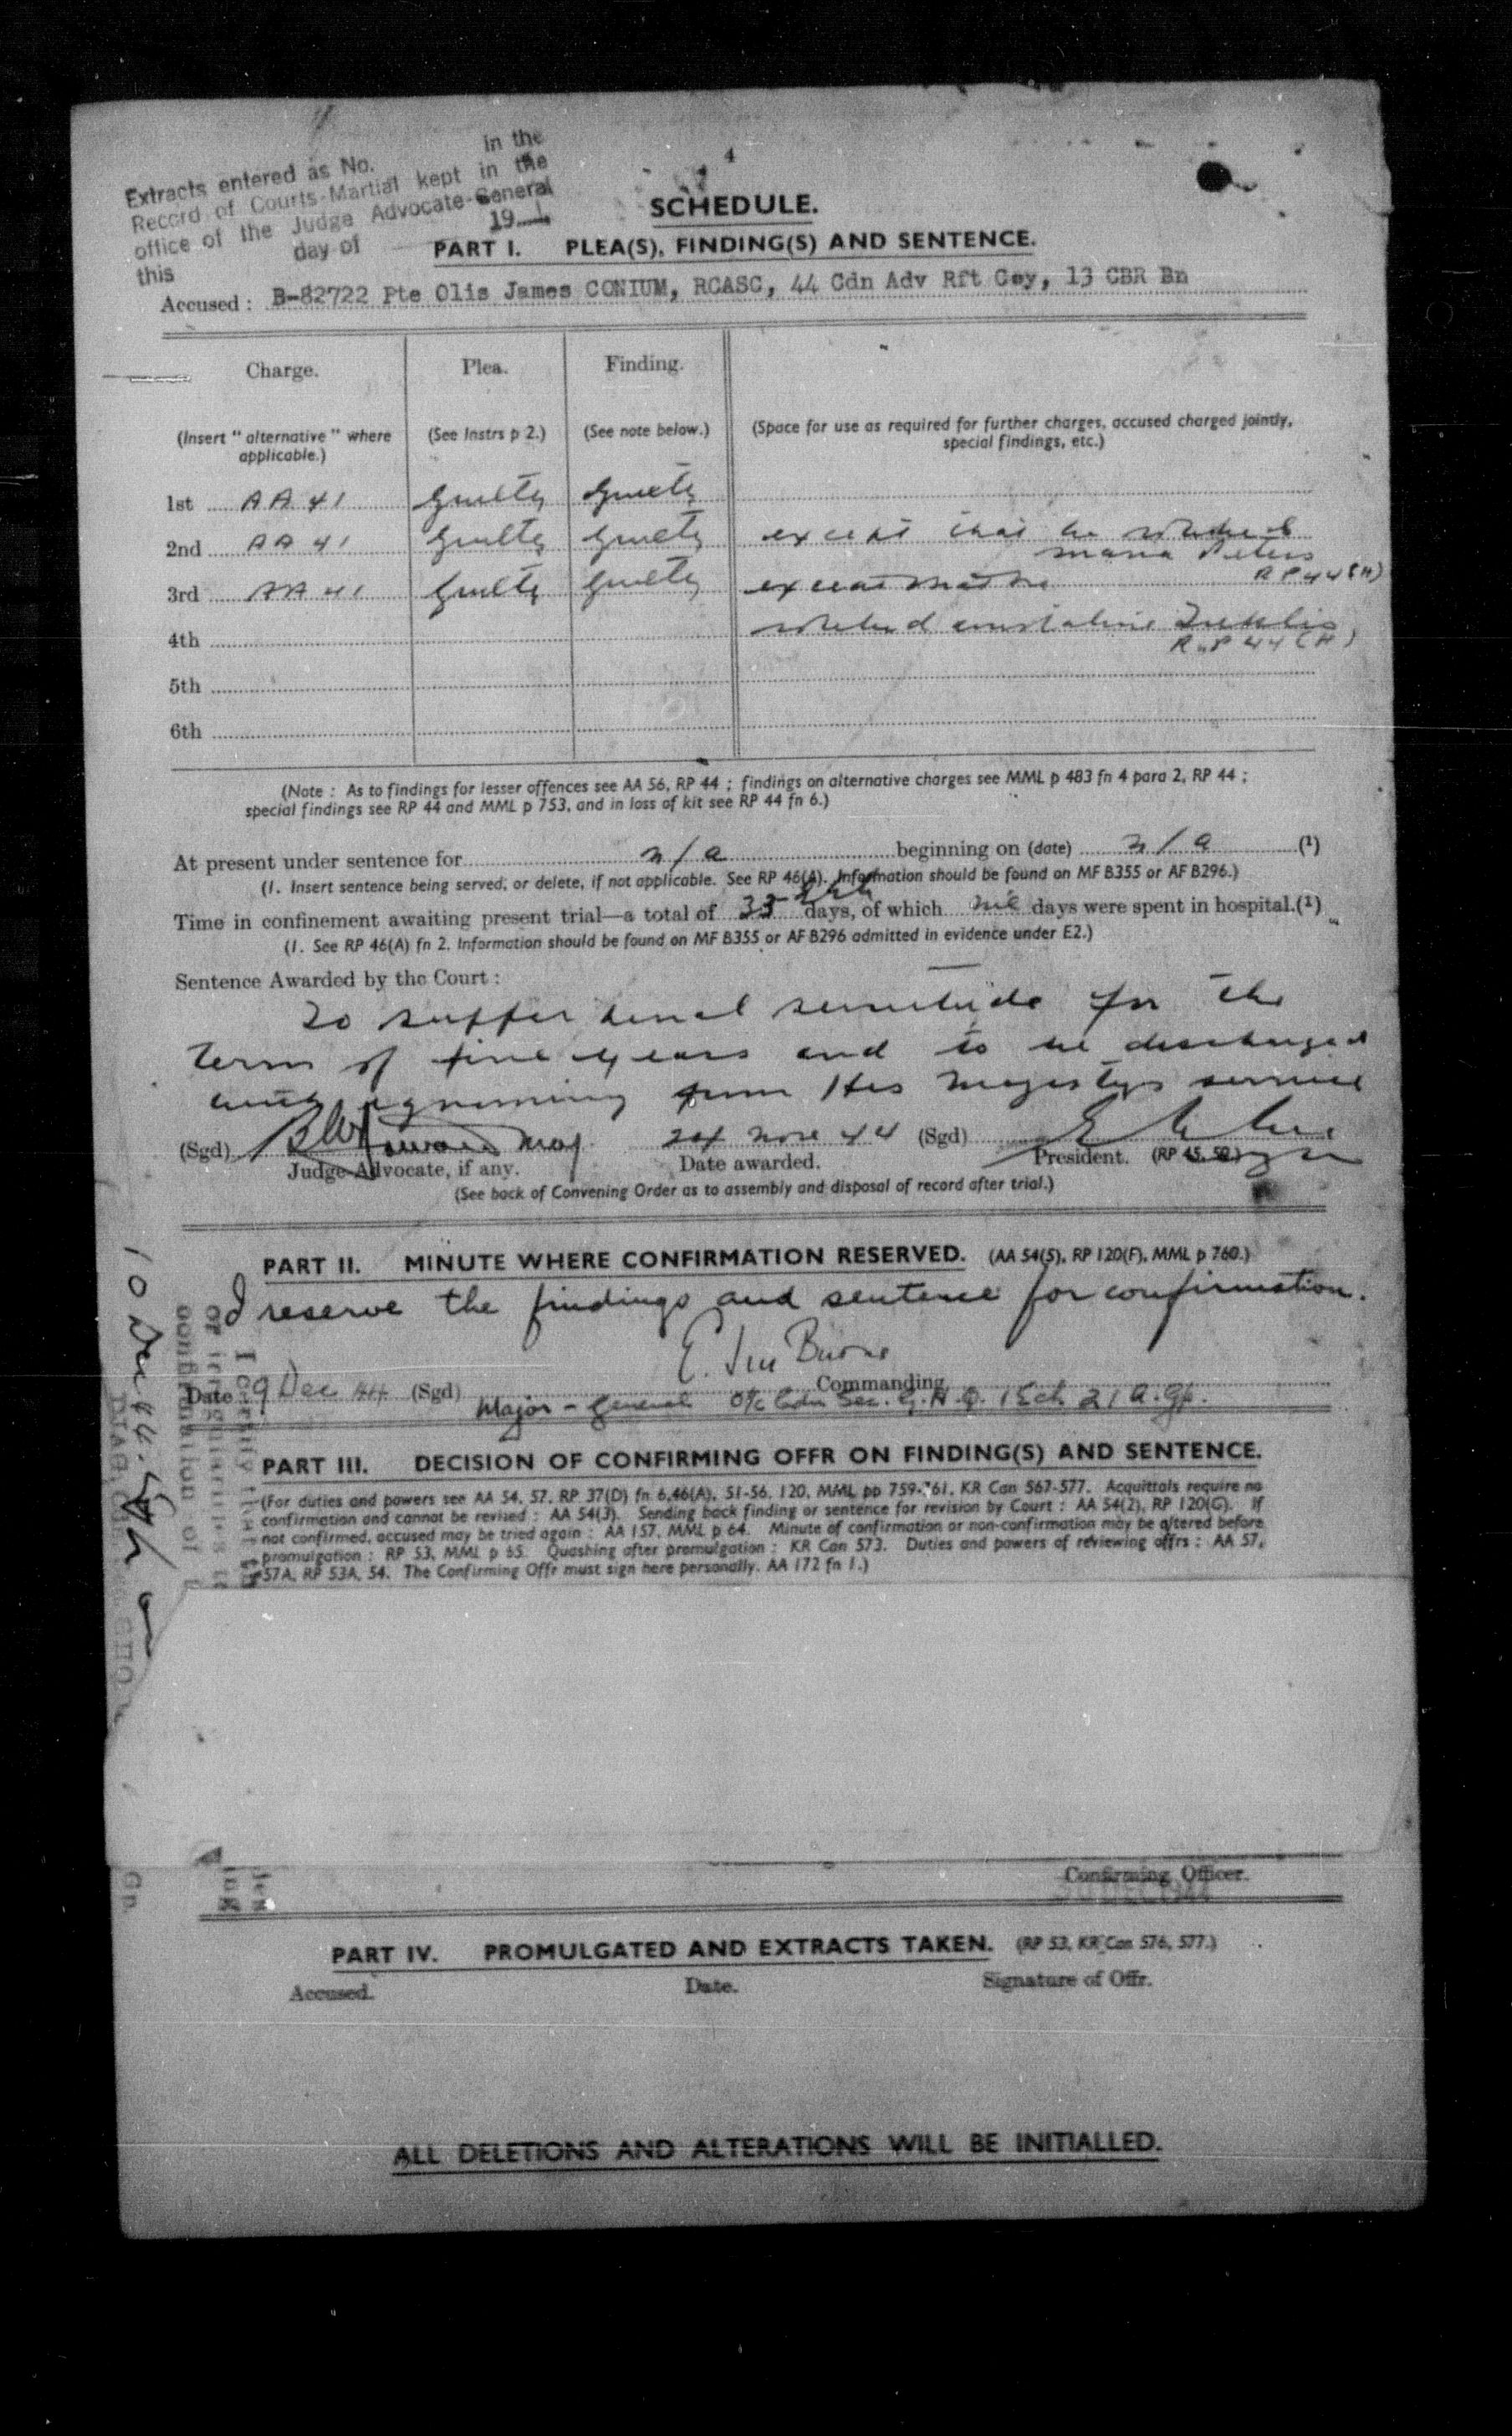 4
Extracts entered as No. in the
Record of Courts-Martial kept in the
office of the Judge Advocate-General
this day of 19
SCHEDULE.
PART I. PLEA(S), FINDING(S) AND SENTENCE.
Accused : B-82722 Pte Olis James CONIUM, RCASC, 44 Cdn Adv Rft Coy, 13 CBR Bn
Charge. Plea. Finding.
(Insert " alternative " where applicable.) (See Instrs p 2.) (See note below.) (Space for use as required for further charges, accused charged jointly, special findings, etc.)
1st AA 41 Guilty Guilty
2nd AA 41 Guilty Guilty except that he robbed
Maria Peters
RP 44 (H)
3rd AA 41 Guilty Guilty except that he
4th robbed
RP 44 (H)
5th
6th
(Note : As to findings for lesser offences see AA 56, RP 44 ; findings on alternative charges see MML p 483 fn 4 para 2, RP 44 ;
special findings see RP 44 and MML p 753, and in loss of kit see RP 44 fn 6.)
At present under sentence for n/a beginning on (date) n/a (1)
(1. Insert sentence being served, or delete, if not applicable. See RP 46(A). Information should be found on MF B355 or AF B296.)
Time in confinement awaiting present trial—a total of 35 days, of which nil days were spent in hospital.(1)
(1. See RP 46(A) fn 2. Information should be found on MF B355 or AF B296 admitted in evidence under E2.)
Sentence Awarded by the Court :
To suffer penal servitude for the
term of five years and to be discharged
with ignominy from His Majestys service
(Sgd) Maj 24 Nov 44 (Sgd)
Judge-Advocate, if any. Date awarded. President. (RP 45, 50.)
(See back of Convening Order as to assembly and disposal of record after trial.)
PART II. MINUTE WHERE CONFIRMATION RESERVED. (AA 54(5), RP 120(F), MML p 760.)
I reserve the findings and sentence for confirmation.
Date 9 Dec 44 (Sgd)
Commanding
Major - General O/c Cdn Sec. G.H.Q. 1 Ech 21 A. Gp.
10 Dec 44.
PART III. DECISION OF CONFIRMING OFFR ON FINDING(S) AND SENTENCE.
(For duties and powers see AA 54, 57, RP 37(D) fn 6,46(A), 51-56, 120, MML pp 759-761, KR Can 567-577. Acquittals require no
confirmation and cannot be revised : AA 54(3). Sending back finding or sentence for revision by Court : AA 54(2), RP 120(G). If
not confirmed, accused may be tried again : AA 157, MML p 64. Minute of confirmation or non-confirmation may be altered before
promulgation : RP 53, MML p 65. Quashing after promulgation : KR Can 573. Duties and powers of reviewing offrs : AA 57,
57A, RP 53A, 54. The Confirming Offr must sign here personally. AA 172 fn 1.)
Confirming Officer.
PART IV. PROMULGATED AND EXTRACTS TAKEN. (RP 53, KR Can 576, 577.)
Accused. Date. Signature of Offr.
ALL DELETIONS AND ALTERATIONS WILL BE INITIALLED.